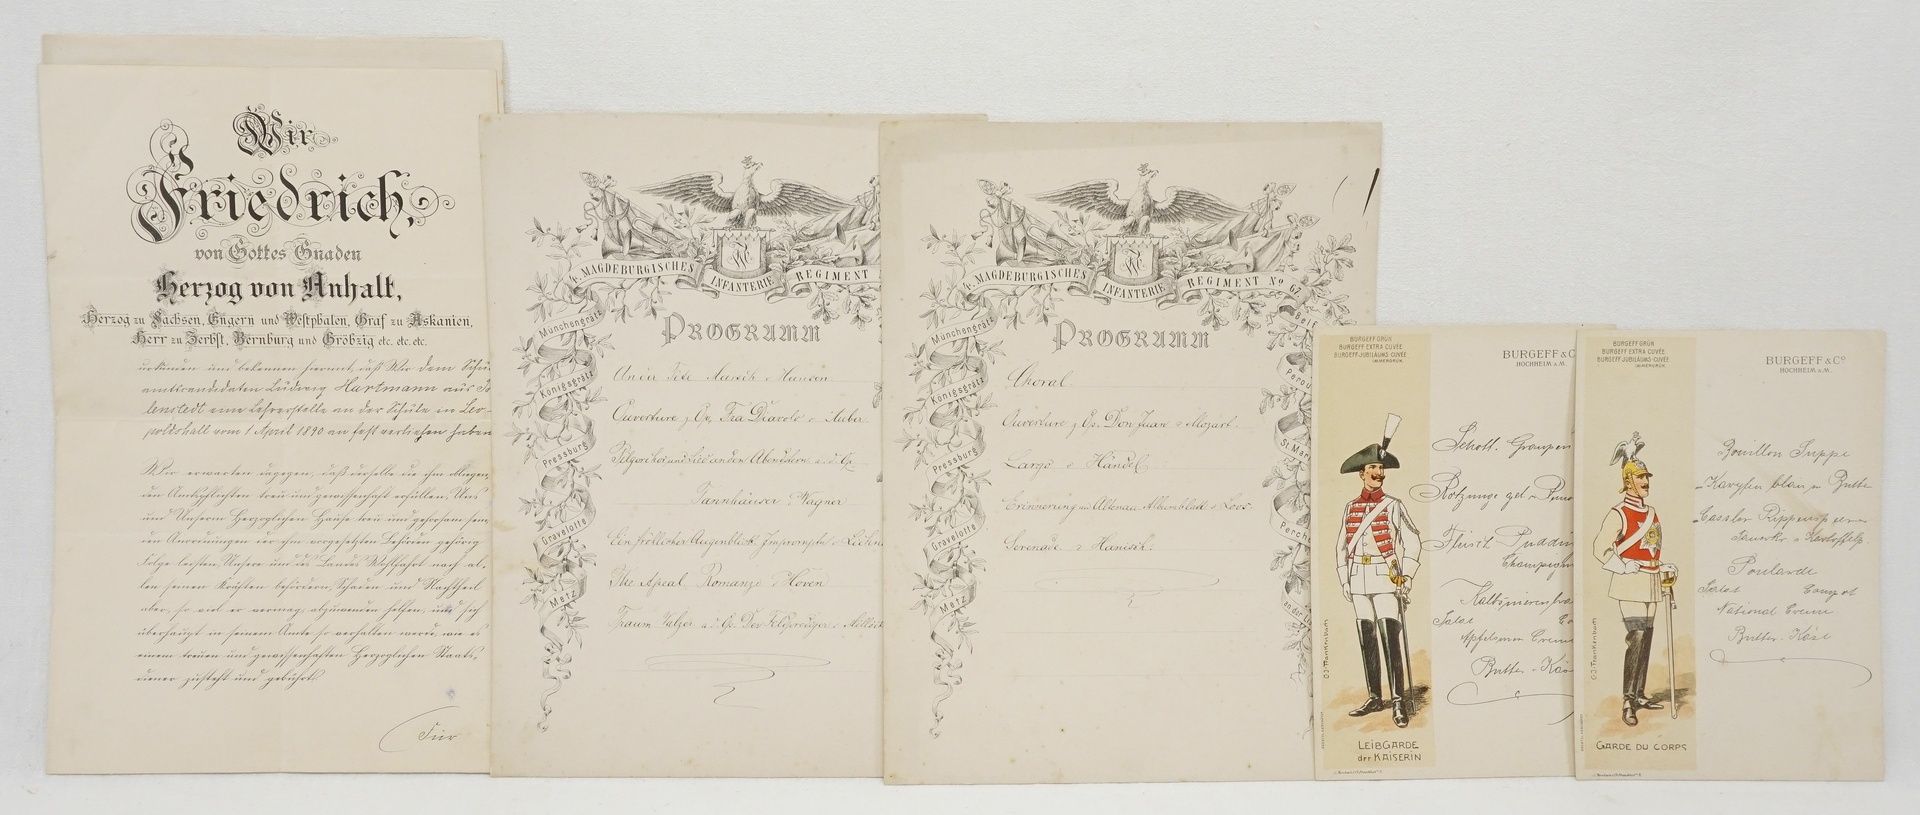 Wir
Friedrich,
von Gottes Gnaden
Herzog von Anhalt,
Herzog zu Sachsen, Engern und Westphalen, Graf zu Askanien,
Herr zu Zerbst, Bernburg und Gröbzig etc. etc. etc.
urkunden und bekennen hiermit, daß Wir dem Schul
amtscandidaten Ludwig Hartmann aus
lenstedt eine Lehrerstelle an der Schule in Leo-
poldshall vom 1 April 1890 an fest verliehen haben
Wir erwarten dagegen, daß derselbe die ihm obliegen-
den Amtspflichten treu und gewissenhaft erfüllen, Uns
und Unserm Herzoglichen Hause treu und gehorsam sein,
den Anordnungen der ihm vorgesetzten Behörden gehörig
Folge leisten, Unsere und des Landes Wohlfahrt nach al-
len seinen Kräften befördern, Schaden und Nachtheil
aber, so viel er vermag, abzuwenden helfen, und sich
überhaupt in seinem Amte so verhalten werde, wie es
einem treuen und gewissenhaften Herzoglichen Staats-
diener zusteht und gebührt.
4. MAGDEBURGISCHES INFANTERIE REGIMENT
PROGRAMM
Münchengrätz
Königsgrätz
Pressburg
Gravelotte
Metz
Ouverture z. Op. Fra Diavolo v. Auber
Tannhäuser Wagner
Ein fröhlicher Augenblick Impromptu v.
The Apeal Romanze v. Hoven
Traum Walzer a. d. Op. Der
4. MAGDEBURGISCHES INFANTERIE REGIMENT No 67
PROGRAMM
Münchengrätz
Königsgrätz
Pressburg
Gravelotte
Metz
Belf
St. Mar
Choral.
Ouverture z. Op. Don Juan v. Mozart.
Largo v. Händel.
Erinnerung an Altenau Albumblatt v. Loos.
Serenade v. Hanisch.
BURGEFF GRÜN
BURGEFF EXTRA CUVÉE
BURGEFF-JUBILÄUMS-CUVÉE
(IMMERGRÜN.
BURGEFF & C
HOCHHEIM A.M.
Schott. Graupen
Fleisch Puddin
Champign
Salat
Apfelsinen Creme
Butter u. Käs
O.J. Frankenbach
LEIBGARDE
der KAISERIN
BURGEFF GRÜN
BURGEFF EXTRA CUVÉE
BURGEFF-JUBILÄUMS-CUVÉE
(IMMERGRÜN.
BURGEFF & Co
HOCHHEIM A.M.
Bouillon Suppe
Karpfen blau m Butter
Poularde
Salat Compot
National Creme
Butter. Käse
O.J. Frankenbach
GARDE DU CORPS